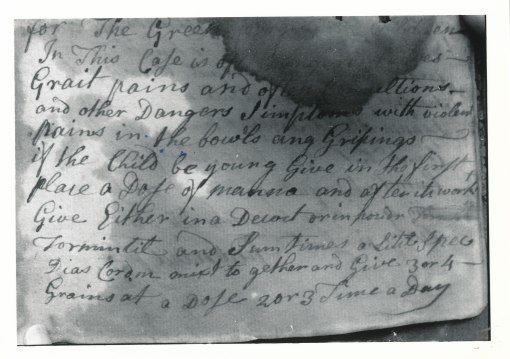 for The Green
In This Case is of
Grait pains and of
and other Dangers Simptoms with violent
pains in the bowls ang Gripings
if the Child be young Give in the first
place a Dose of manna and afterithworks
Give Either in a Decoct or in powdr
Tormintil and Sumtimes a Litl Spec
Dias Coram mixt to gether and Give 3 or 4
Grains at a Dose 2 or 3 Time a Day